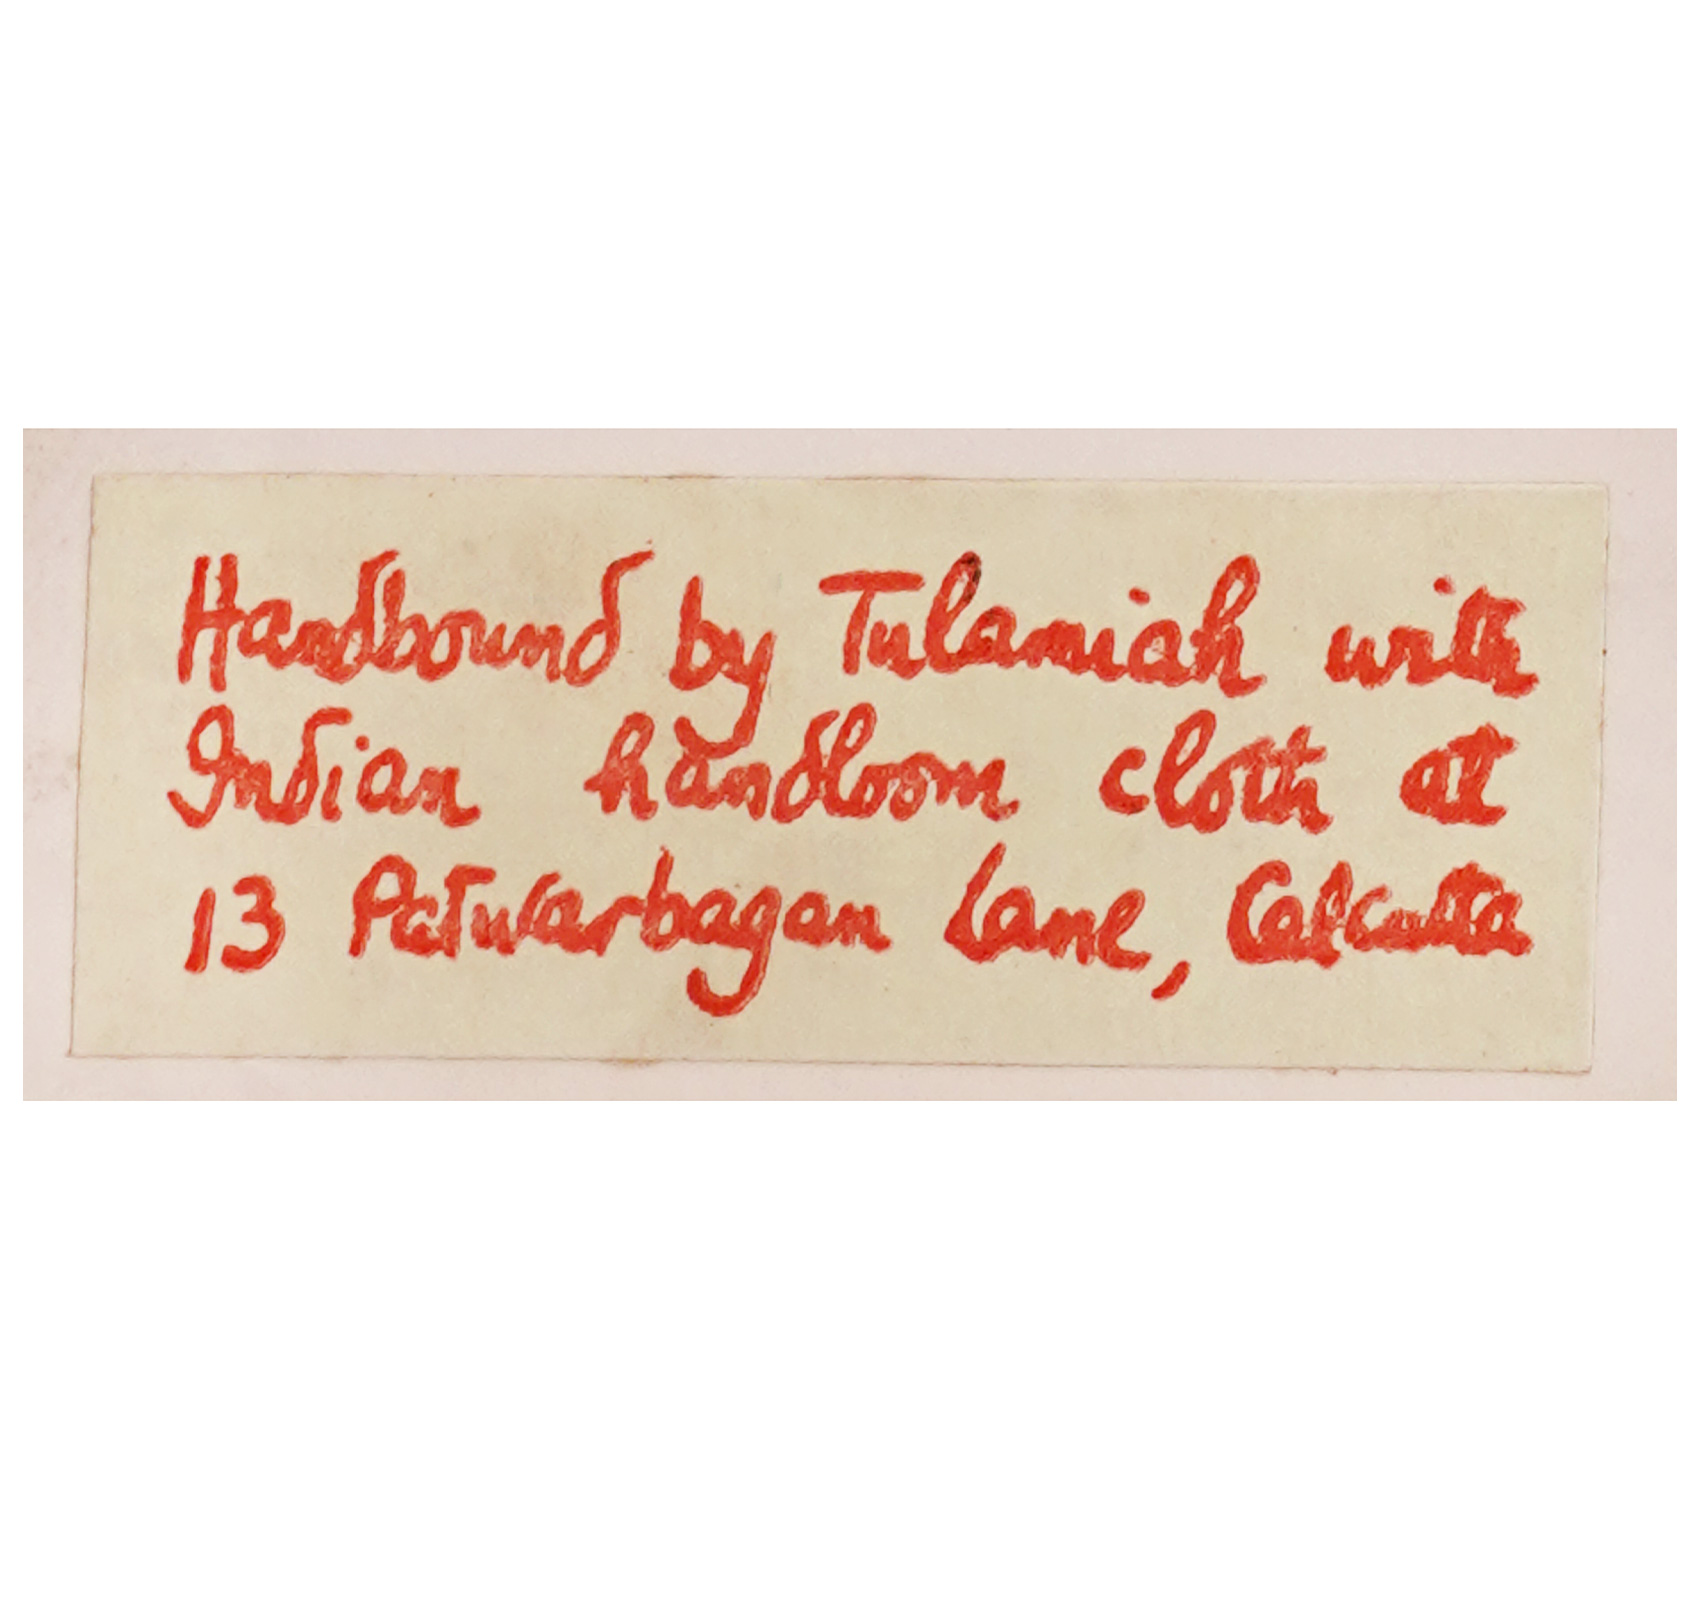 Handbound by Tulamiah with
Indian handloom cloth at
13 Patwarbagan Lane, Calcutta